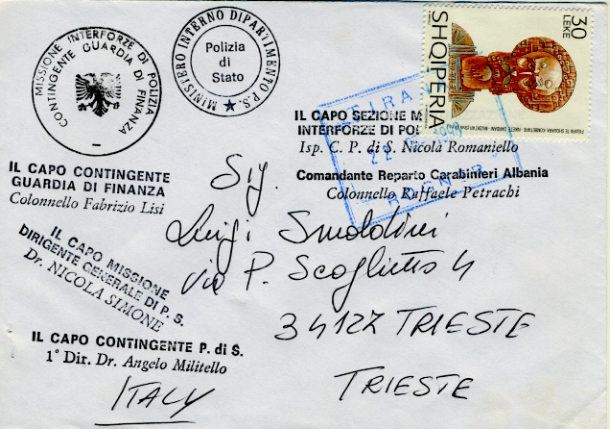 MISSIONE INTERFORZE DI POLIZIA
CONTINGENTE GUARDIA DI FINANZA
MINISTERO INTERNO DIPARTIMENTO P.S.
Polizia
di
Stato
30
LEKE
SHQIPERIA
TIRA
22
ROGNER
IL CAPO SEZIONE M
INTERFORZE DI POL
Isp. C. P. di S. Nicola Romaniello
Comandante Reparto Carabinieri Albania
Colonnello Raffaele Petrachi
IL CAPO CONTINGENTE
GUARDIA DI FINANZA
Colonnello Fabrizio Lisi
IL CAPO MISSIONE
DIRIGENTE GENERALE DI P. S.
Dr. NICOLA SIMONE
IL CAPO CONTINGENTE P. di S.
1° Dir. Dr. Angelo Militello
Sig.
Luigi
via P. 4
34127 TRIESTE
TRIESTE
ITALY